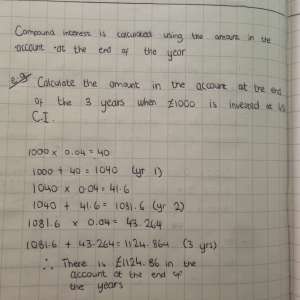 Compound interest is calculated using the amount in the
account at the end of the year
e.g. Calculate the amount in the account at the end
of the 3 years when £1000 is invested at
C.I.
1000 x 0.04 = 40
1000 + 40 = 1040 (yr 1)
1040 x 0.04 = 41.6
1040 + 41.6 = 1081.6 (yr 2)
1081.6 x 0.04 = 43.264
1081.6 + 43.264 = 1124.864 (3 yrs)
∴ There is £1124.86 in the
account at the end of
the years